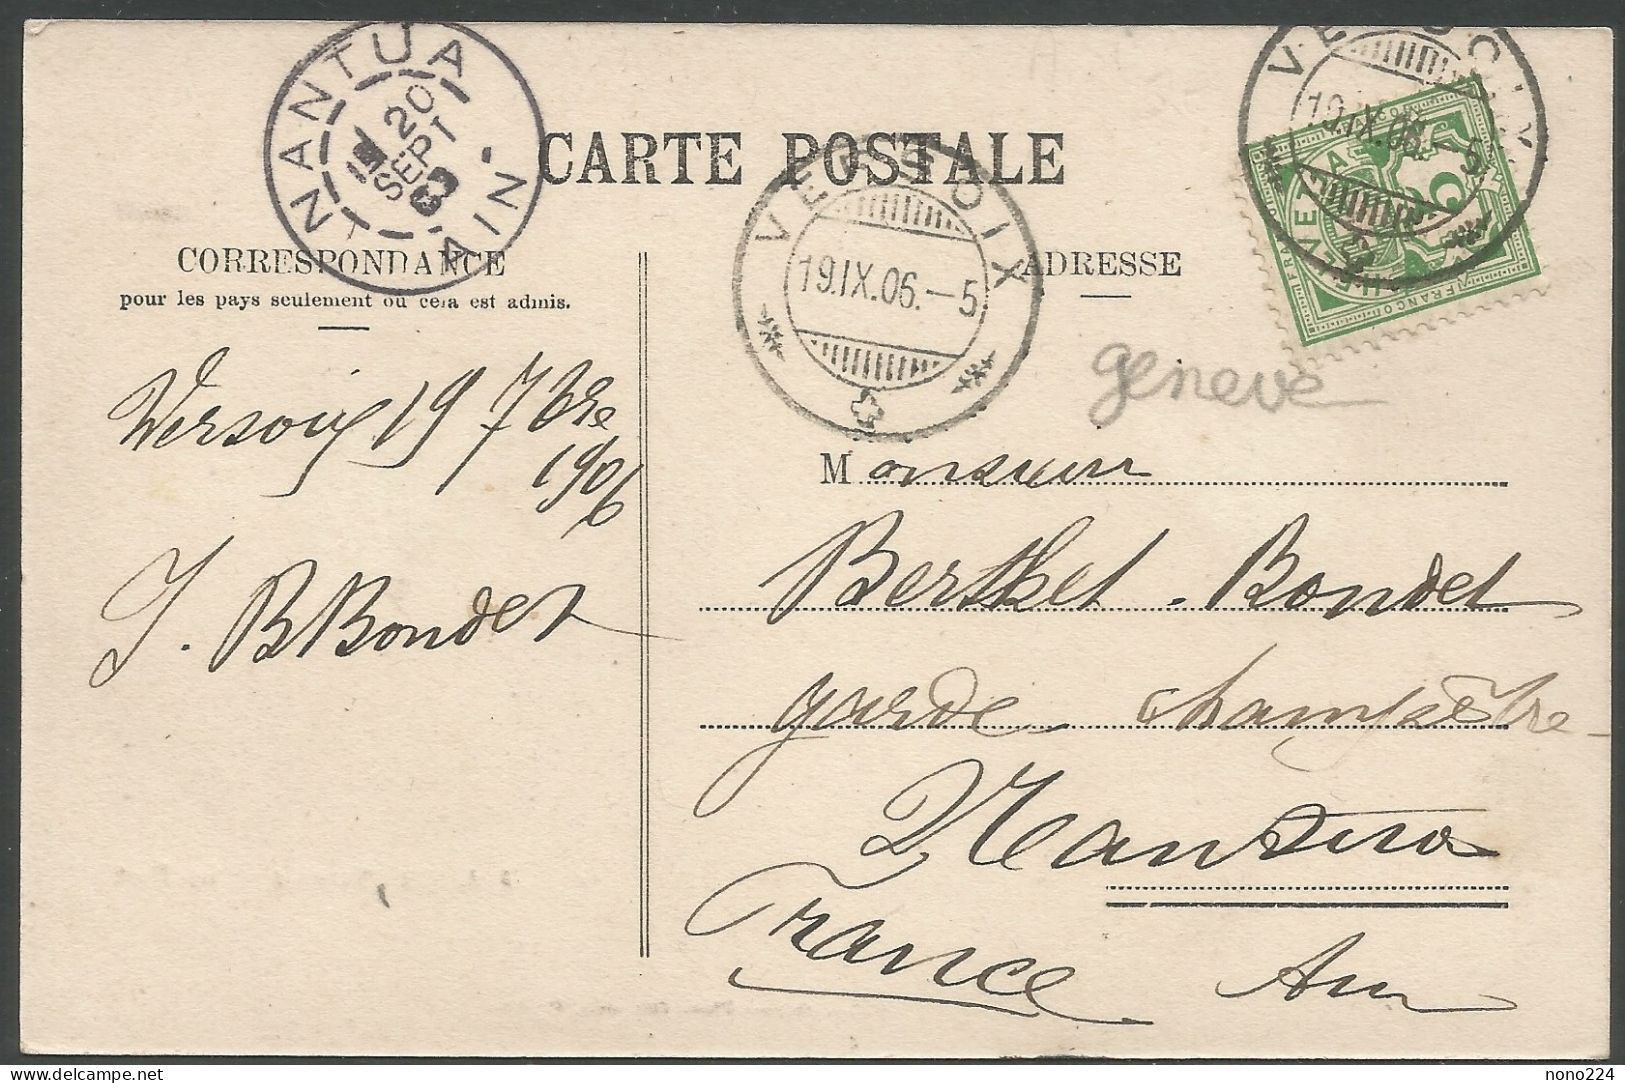 NANTUA
20
SEPT
AIN
CARTE POSTALE
VERSOIX
19.IX.06.–5
VERSOIX
19.IX.06.–5
HELVETIA
FRANCO
5
CORRESPONDANCE
pour les pays seulement où cela est admis.
ADRESSE
geneve
Versoix 19 7bre
1906
J. BBondet
Monsieur
Berthet-Bondet
garde champêtre
Nantua
France Ain
nono224